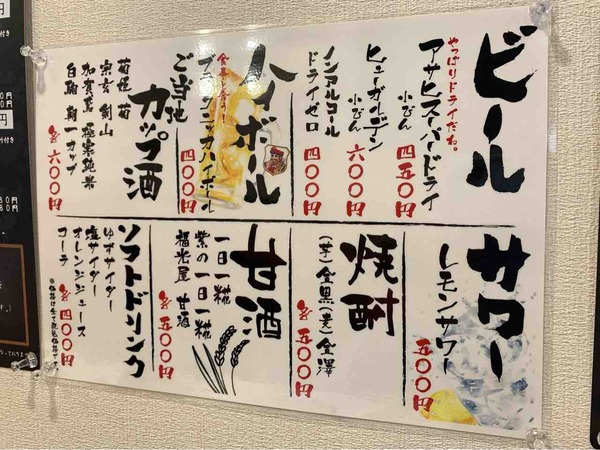 ビール
やっぱりドライだね。
アサヒスーパードライ
小びん
四五〇円
ヒューガルデン
小びん
六〇〇円
ノンアルコール
ドライゼロ
四〇〇円
ハイボール
ブラックニッカハイボール
四〇〇円
ご当地
カップ酒
菊姫 菊
宗玄 剣山
加賀鳶 極寒純米
白駒 駒一カップ
各六〇〇円
サワー
レモンサワー
五〇〇円
焼酎
(芋)金黒(麦)金澤
各五〇〇円
甘酒
一日一糀
紫の一日一糀
福光屋 甘酒
各五〇〇円
ソフトドリンク
ゆずサイダー
塩サイダー
オレンジジュース
コーラ
各四〇〇円